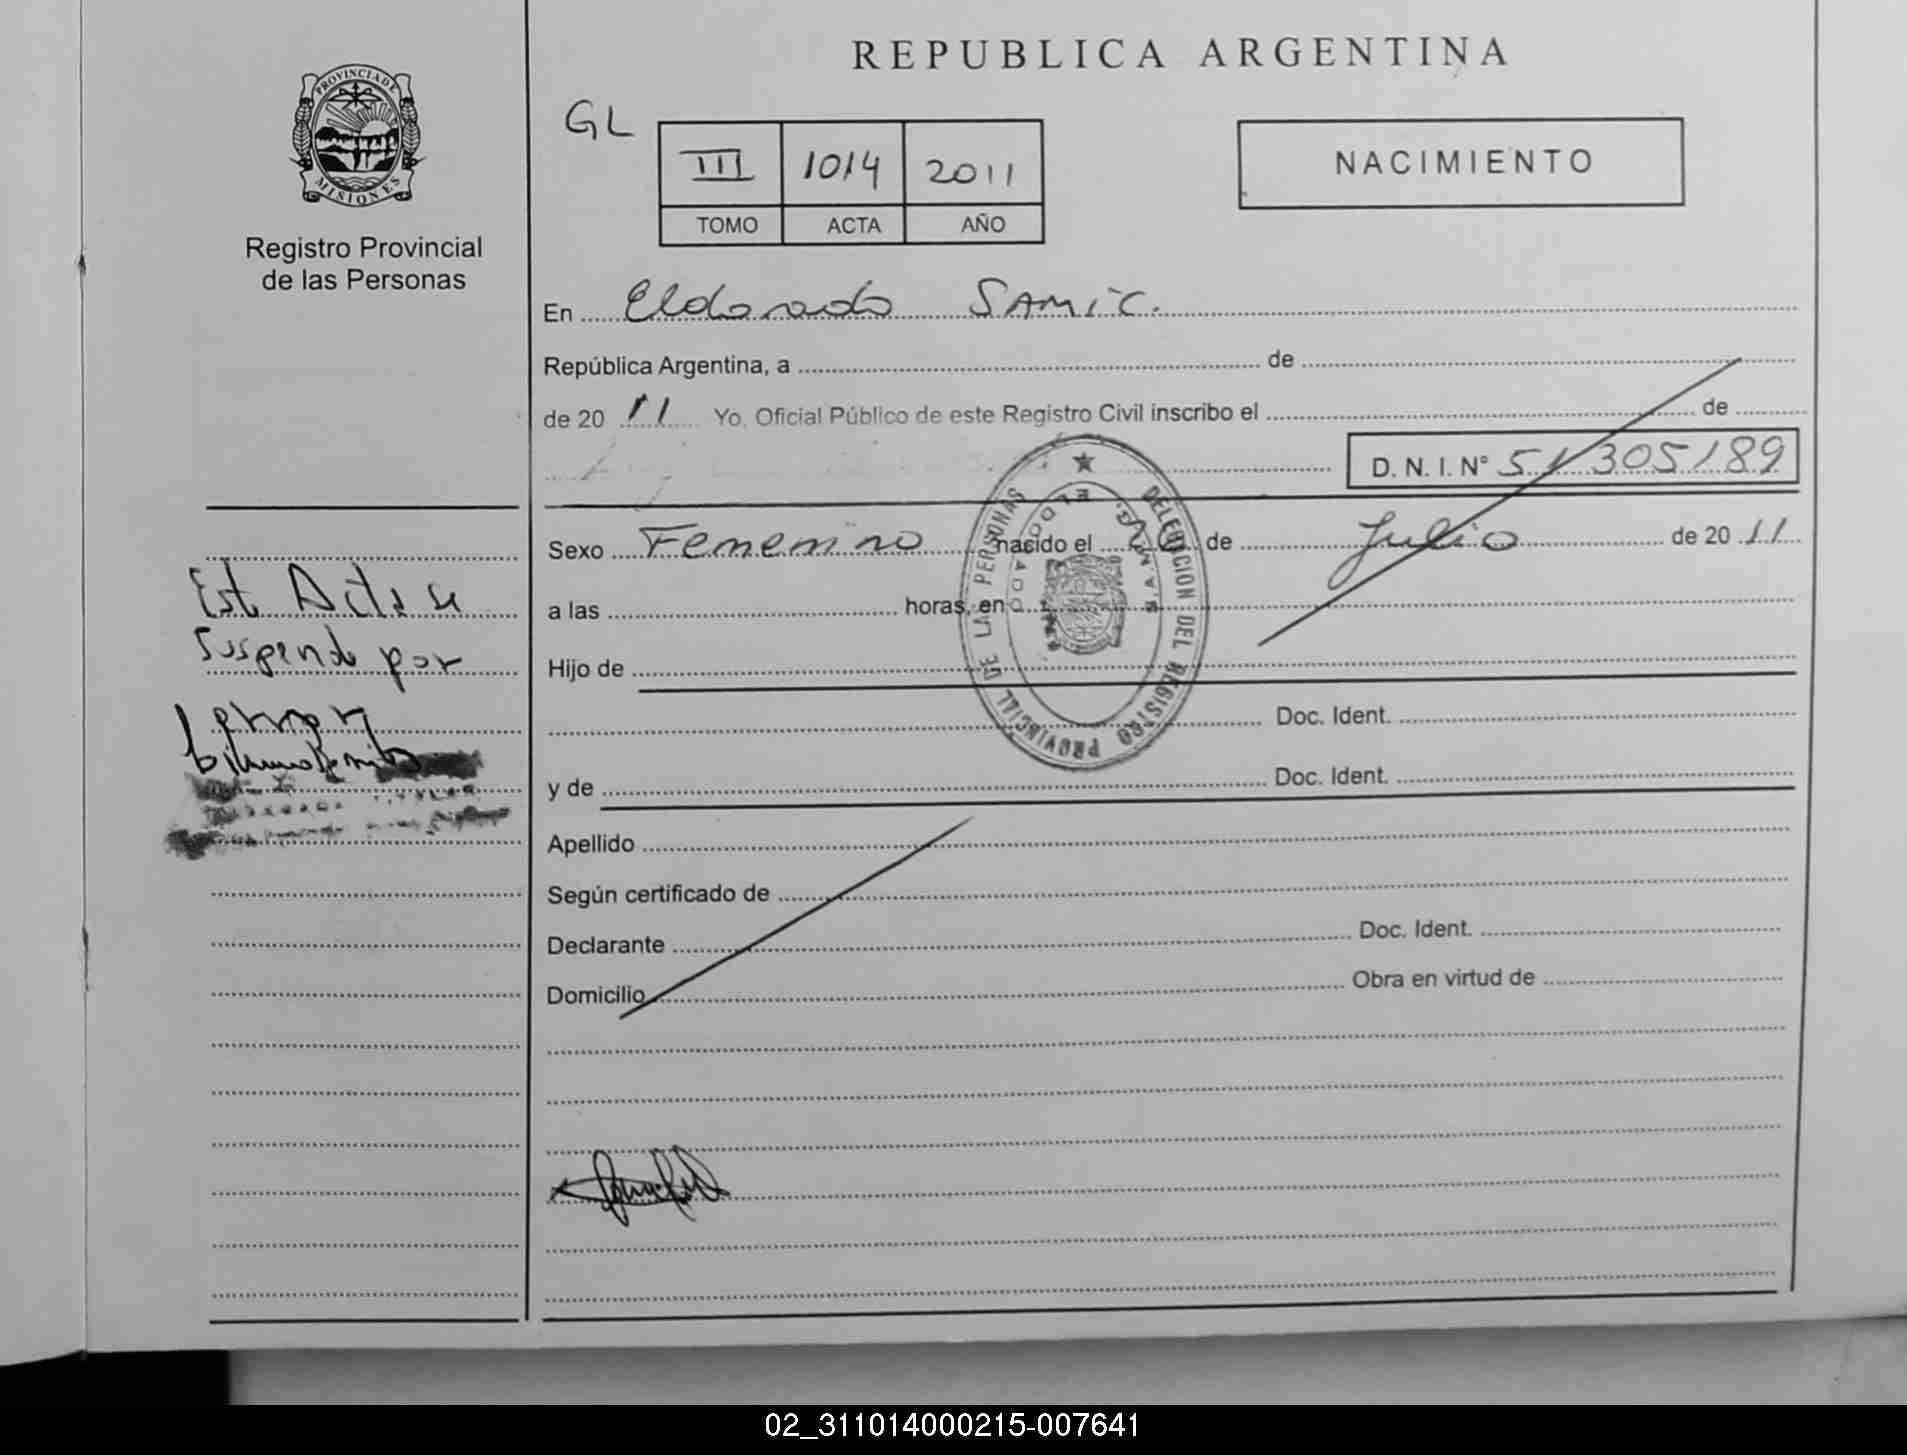 PROVINCIA DE
MISIONES
Registro Provincial
de las Personas
REPUBLICA ARGENTINA
GL
III 1014 2011
TOMO ACTA AÑO
NACIMIENTO
En Eldorado SAMIC.
República Argentina, a de
de 20 11 Yo, Oficial Público de este Registro Civil inscribo el de
D. N. I. N° 51305189
Sexo Femenino nacido el de Julio de 2011
a las horas, en
Hijo de
Doc. Ident.
y de Doc. Ident.
Apellido
Según certificado de
Declarante Doc. Ident.
Domicilio Obra en virtud de
DELEGACION DEL REGISTRO PROVINCIAL DE LAS PERSONAS
Acta se
Suspende por
02_311014000215-007641